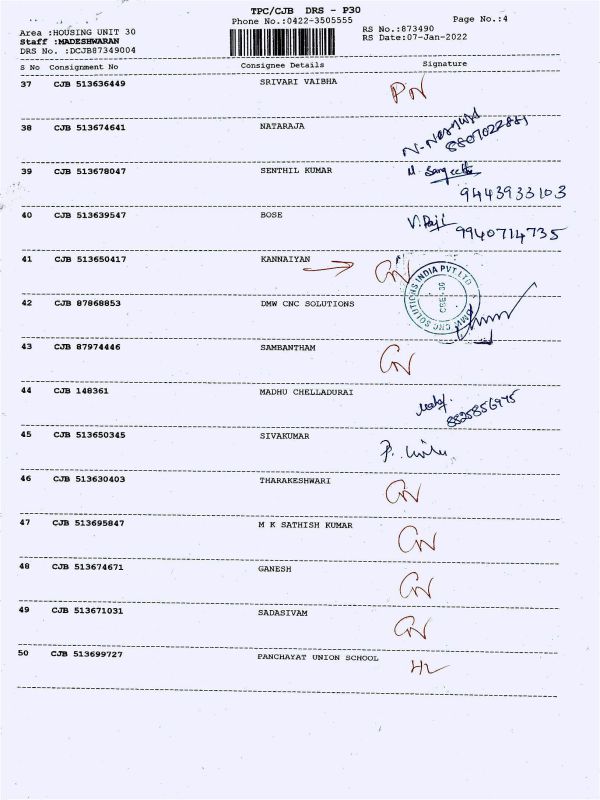 TPC/CJB DRS - P30
Phone No.:0422-3505555
Page No.:4
Area :HOUSING UNIT 30
Staff :MADESHWARAN
DRS No. :DCJB87349004
RS No.:873490
RS Date:07-Jan-2022
S No Consignment No Consignee Details Signature
37 CJB 513636449 SRIVARI VAIBHA PN
38 CJB 513674641 NATARAJA
8807022881
39 CJB 513678047 SENTHIL KUMAR M. Sangeetha
9443933103
40 CJB 513639547 BOSE
9940714735
41 CJB 513650417 KANNAIYAN GN
42 CJB 87868853 DMW CNC SOLUTIONS
DMW CNC SOLUTIONS INDIA PVT LTD
CBE-36
43 CJB 87974446 SAMBANTHAM GN
44 CJB 148361 MADHU CHELLADURAI
8825856975
45 CJB 513650345 SIVAKUMAR
46 CJB 513630403 THARAKESHWARI GN
47 CJB 513695847 M K SATHISH KUMAR GN
48 CJB 513674671 GANESH GN
49 CJB 513671031 SADASIVAM GN
50 CJB 513699727 PANCHAYAT UNION SCHOOL HL